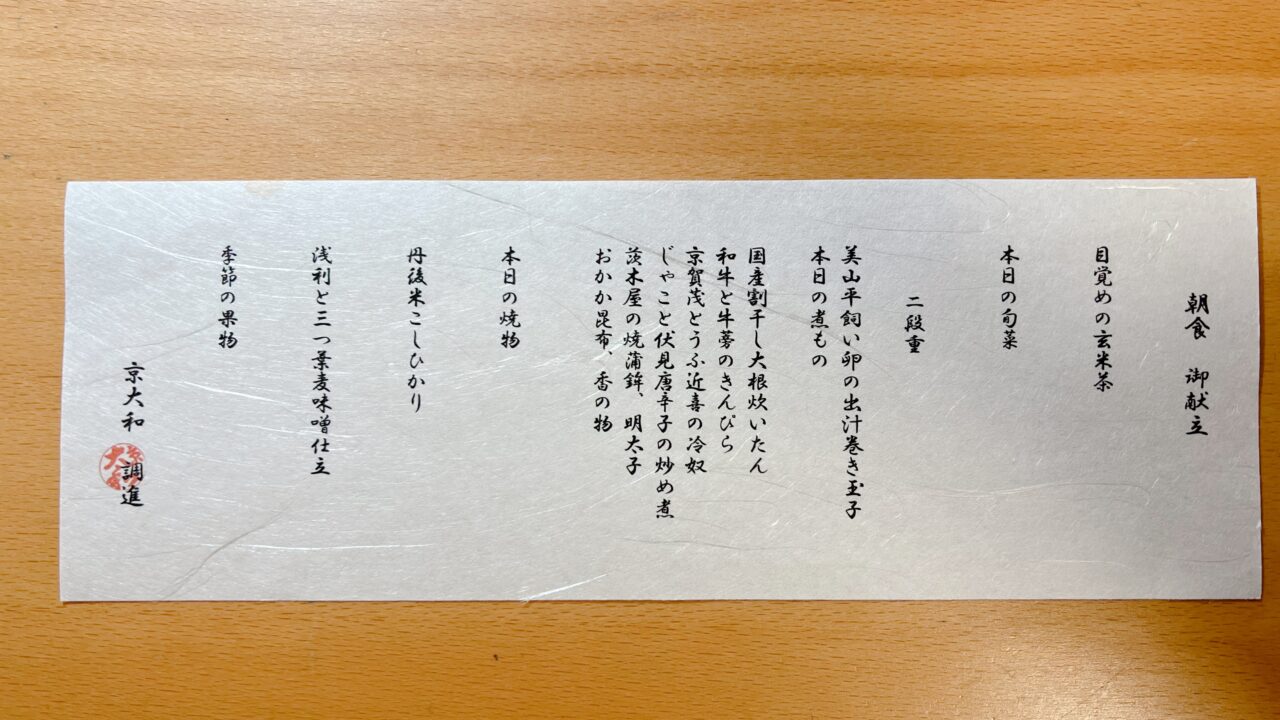 朝食　御献立
目覚めの玄米茶
本日の旬菜
二段重
美山平飼い卵の出汁巻き玉子
本日の煮もの
国産割干し大根炊いたん
和牛と牛蒡のきんぴら
京賀茂とうふ近喜の冷奴
じゃこと伏見唐辛子の炒め煮
茨木屋の焼蒲鉾、明太子
おかか昆布、香の物
本日の焼物
丹後米こしひかり
浅利と三つ葉麦味噌仕立
季節の果物
京大和　調進